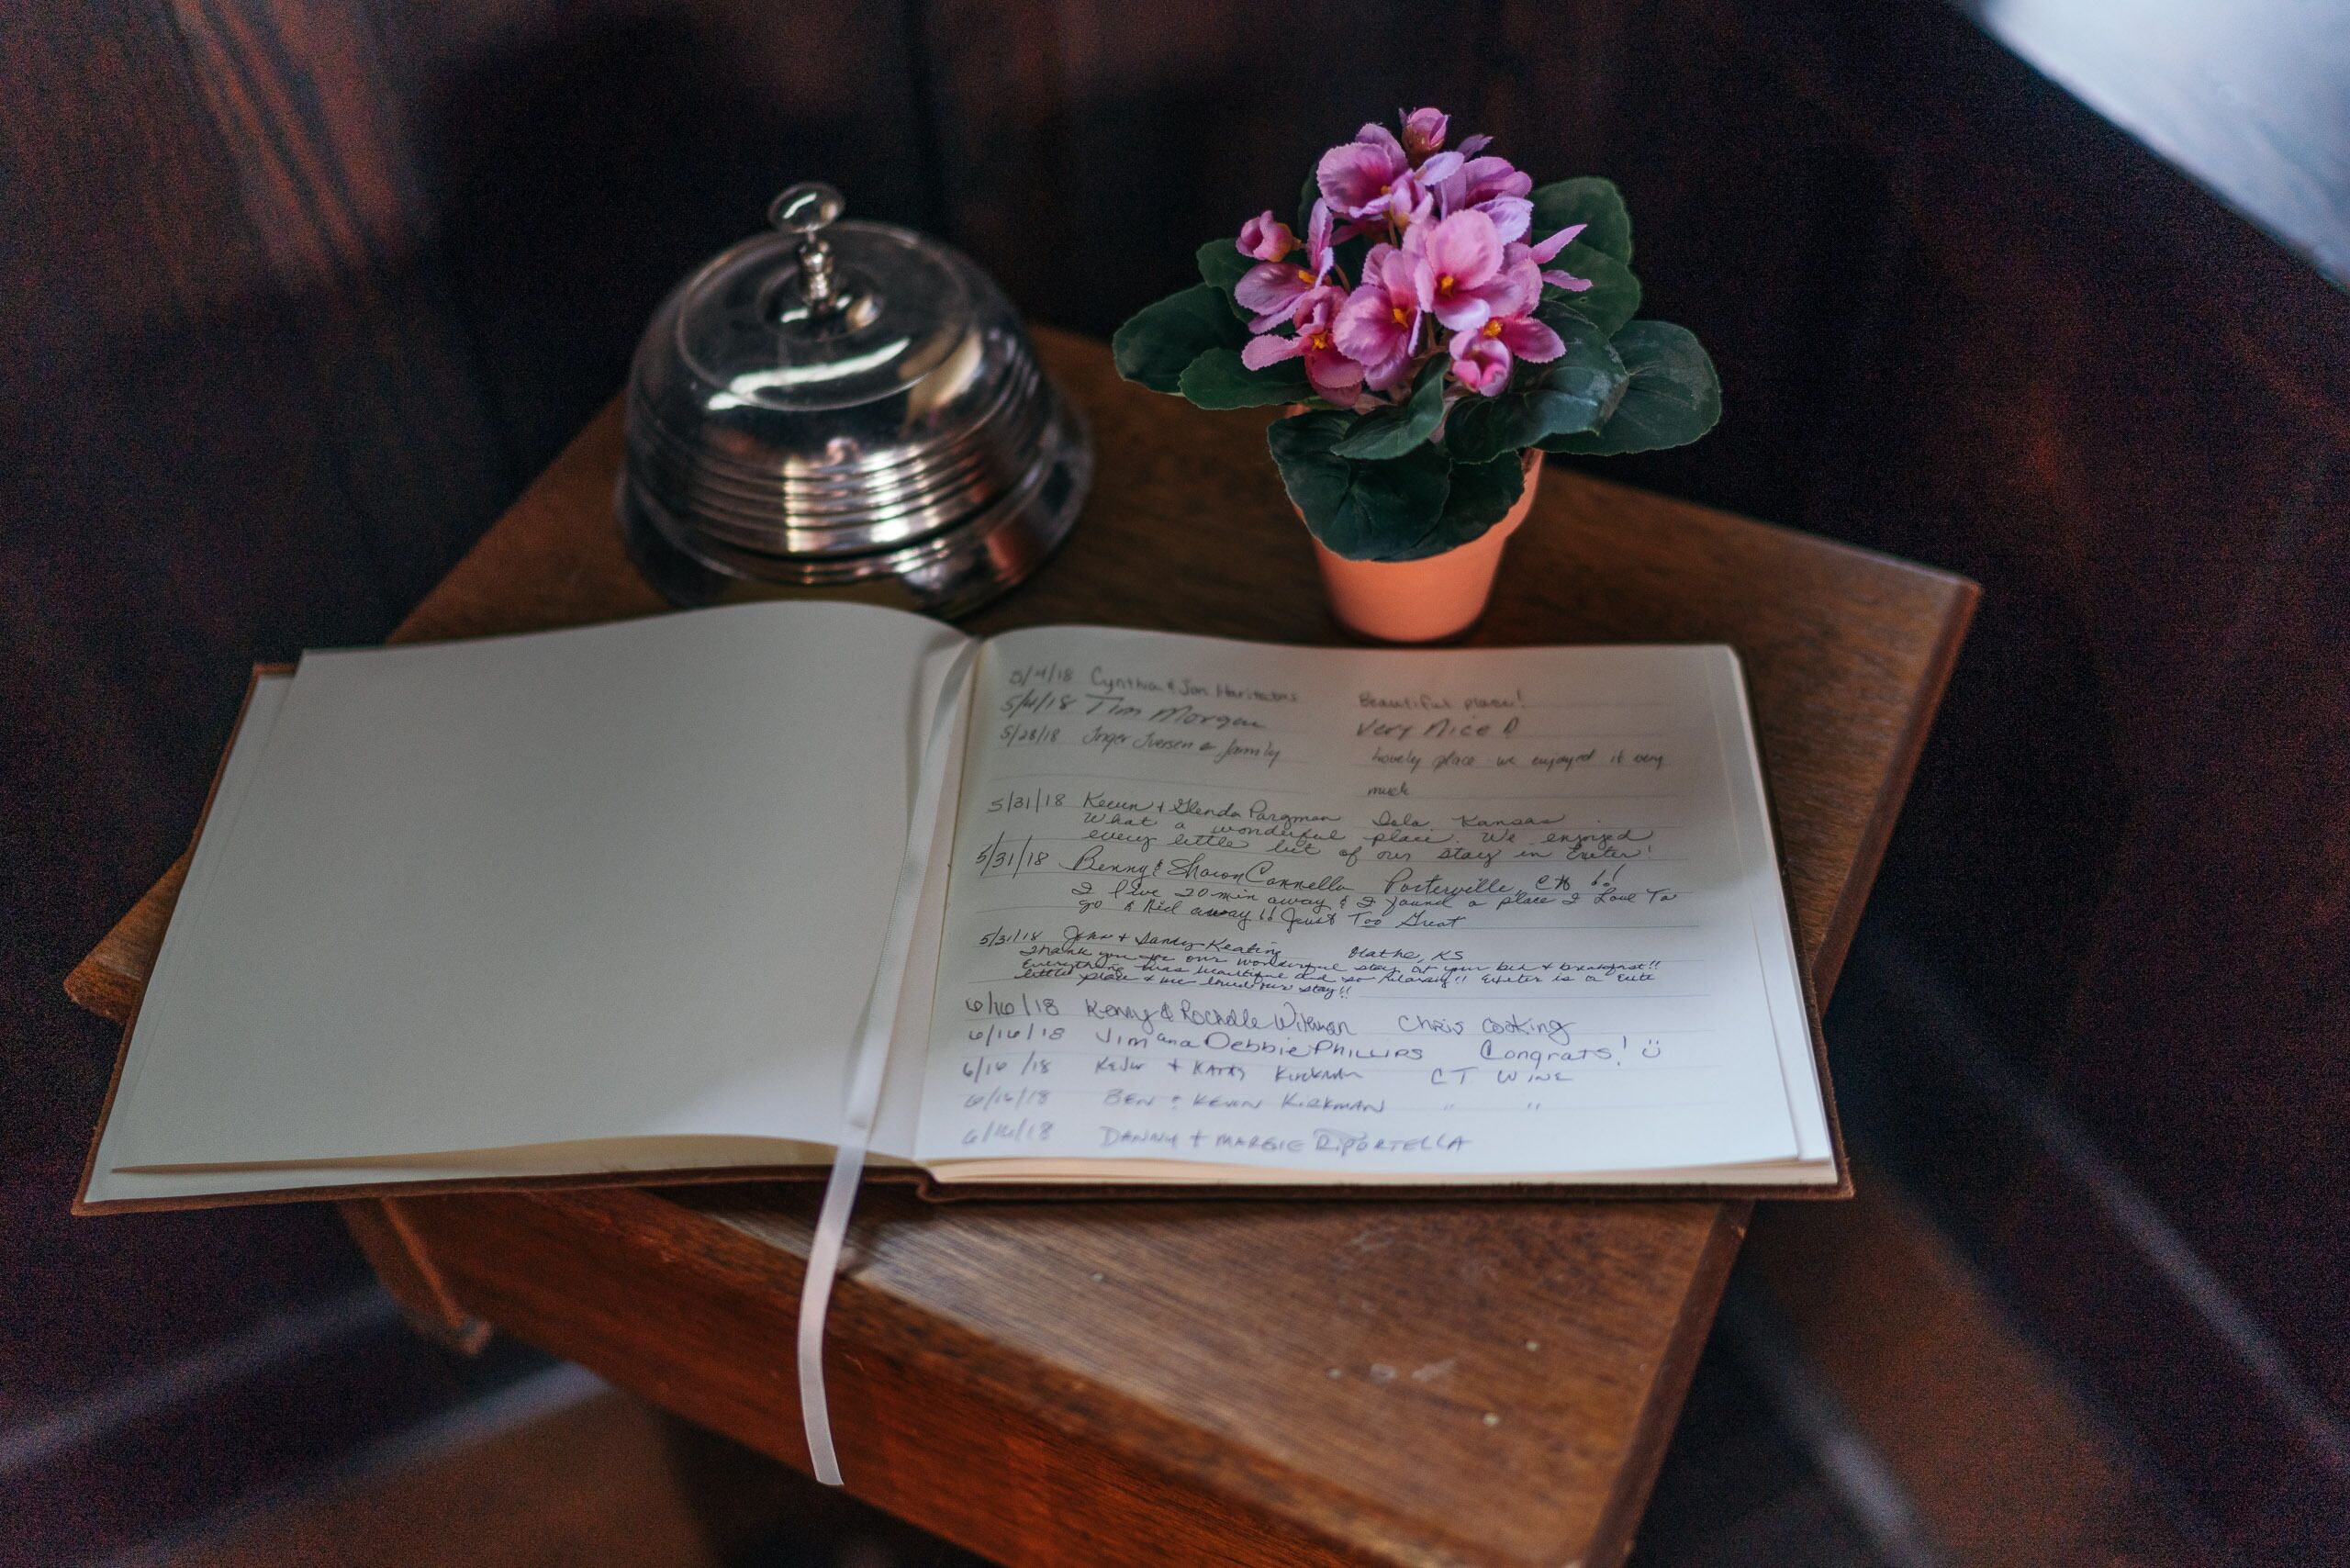 5/4/18 Cynthia & Jon Beautiful place!
5/4/18 Tim Morgan Very Nice!
5/28/18 Inger Iversen & family Lovely place we enjoyed it very
much
5/31/18 Kevin + Glenda Pargman Iola, Kansas.
What a wonderful place. We enjoyed
every little bit of our stay in Exeter!
5/31/18 Benny & Sharon Cannella Porterville, CA !!
I live 20 min away & I found a place I Love To
go & Hid away!! Just Too Great
5/31/18 John + Sandy Keating Olathe, KS
Thank you for our wonderful stay at your bed + breakfast!!
Everything was beautiful and so relaxing!! Exeter is a cute
little place & we loved our stay!!
6/16/18 Kenny & Rochelle Chris Cooking
6/16/18 Jim and Debbie PHILLIPS Congrats! ü
6/16/18 + KATHY CT WINE
6/16/18 BEN & KEVIN KIRKMAN " "
6/16/18 DANNY + MARGIE RIPORTELLA